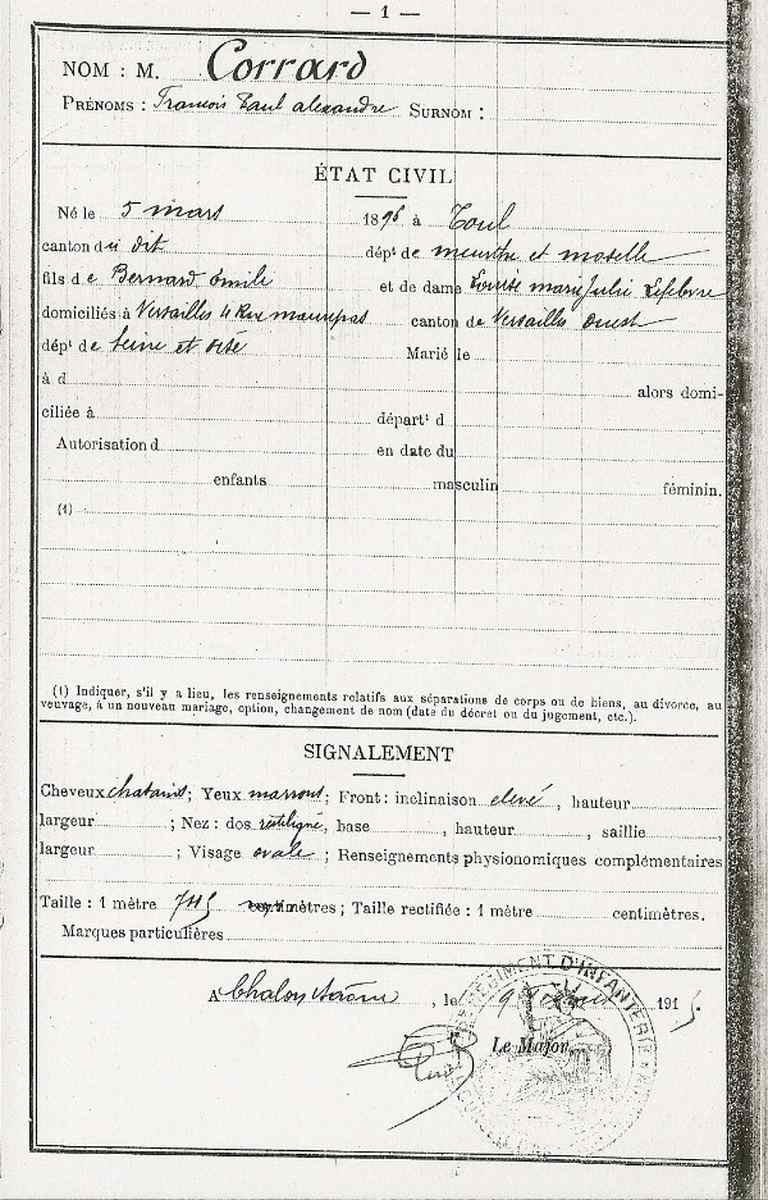 — 1 —
NOM : M. Corrard
PRÉNOMS : François Paul alexandre SURNOM :
ÉTAT CIVIL
Né le 5 mars 1895 à Toul
canton du dit dépt de meurthe et moselle
fils de Bernard Émile et de dame Louise marie Julie Lefebvre
domiciliés à Versailles 4 Rue maurepas canton de Versailles Ouest
dépt de seine et oise Marié le
à d alors domi-
ciliée à départt d
Autorisation d en date du
enfants masculin féminin.
(1)
(1) Indiquer, s'il y a lieu, les renseignements relatifs aux séparations de corps ou de biens, au divorce, au
veuvage, à un nouveau mariage, option, changement de nom (date du décret ou du jugement, etc.).
SIGNALEMENT
Cheveux chatains; Yeux marrons; Front : inclinaison elevé, hauteur
largeur ; Nez : dos rectiligne, base , hauteur , saillie ,
largeur ; Visage ovale ; Renseignements physionomiques complémentaires
Taille : 1 mètre 745 centimètres ; Taille rectifiée : 1 mètre centimètres.
Marques particulières
A Chalon s/ Saône, le 9 1915.
RÉGIMENT D'INFANTERIE
Le Major,